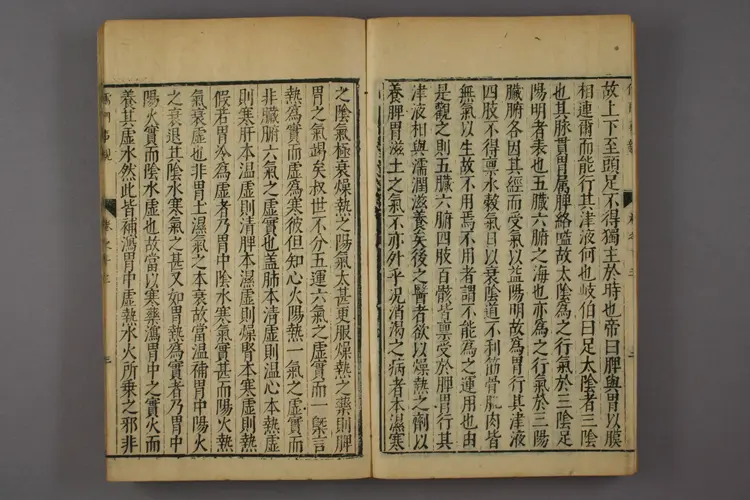 故上下至頭足不得獨主於時也帝曰脾與胃以膜
相連爾而能行其津液何也岐伯曰足太陰者三陰
也其脉貫胃屬脾絡嗌故太陰爲之行氣於三陰足
陽明者表也五臟六腑之海也亦爲之行氣於三陽
臟腑各因其經而受氣以益陽明故爲胃行其津液
四肢不得禀水穀氣日以衰陰道不利筋骨肌肉皆
無氣以生故不用焉不用者謂不能為之運用也由
是觀之則五臟六腑四肢百骸皆禀受於脾胃行其
津液相與濡潤滋養矣後之醫者欲以燥熱之劑以
養脾胃滋土之氣不亦外乎况消渴之病者本濕寒
之陰氣極衰燥熱之陽氣太甚更服燥熱之藥則脾
胃之氣竭矣叔世不分五運六氣之虛實而一槩言
熱爲實而虛爲寒彼但知心火陽熱一氣之虛實而
非臟腑六氣之虛實也蓋肺本清虛則温心本熱虛
則寒肝本温虛則清脾本濕虛則燥腎本寒虛則熱
假若胃冷為虛者乃胃中陰水寒氣實甚而陽火熱
氣衰虛也非胃土濕氣之本衰故當温補胃中陽火
之衰退其陰水寒氣之甚又如胃熱爲實者乃胃中
陽火實而陰水虛也故當以寒藥瀉胃中之實火而
養其虛水然此皆補瀉胃中虛熱水火所乗之邪非